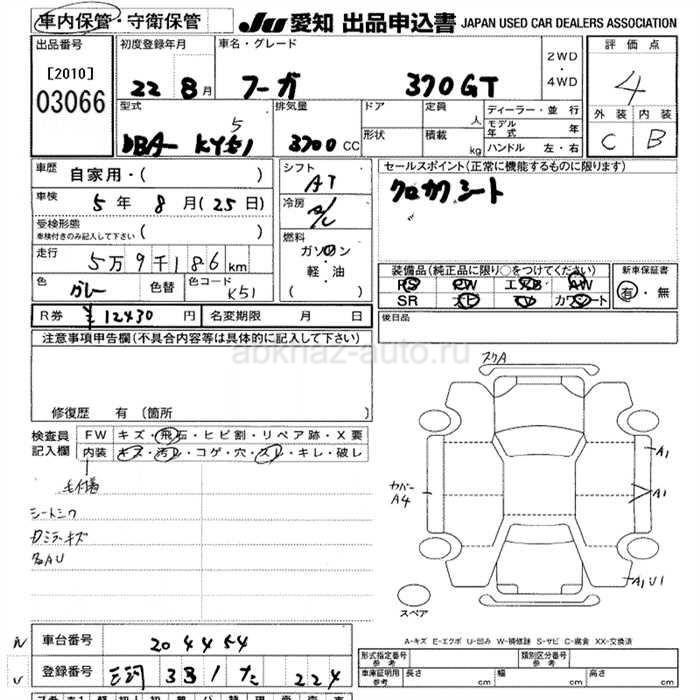 車内保管・守衛保管 JU 愛知 出品申込書 JAPAN USED CAR DEALERS ASSOCIATION
出品番号 初度登録年月 車名・グレード 評価点
[2010] 22 8月 フーガ 370GT 2WD・4WD 4
03066 型式 排気量 ドア 定員 人 ディーラー・並行 外装 内装
DBA- KY51 3700CC 形状 積載 kg モデル年式 年 C B
ハンドル 左・右
車歴 自家用・( ) シフト AT セールスポイント(正常に機能するものに限ります)
車検 5年 8月(25日) 冷房 A/C クロカワシート
受検形態 車検付きのみ記入して下さい ( ) 燃料
走行 5万9千186km ガソリン 軽・油 ( )
装備品(純正品に限り○をつけてください) 新車保証書
色 グレー 色替 色コード K51 PS PW エアB AW 有・無
SR ナビ TV カワシート
R券 ¥12430円 名変期限 月 日 後日品
注意事項申告欄(不具合内容等は具体的に記入して下さい)
abkhaz-auto.ru
スクA
修復歴 有(箇所 )
検査員記入欄 FW キズ・飛石・ヒビ割・リペア跡・X要
内装 キズ・汚レ・コゲ・穴・スレ・キレ・破レ
A1
カバーA4
A1
シートシワ
ミラーキズ
各AU
A1U1
スペア
A-キズ E-エクボ U-凹み W-補修跡 S-サビ C-腐食 XX-交換済
N 車台番号 204454
U 登録番号 三河 331 な 224
形式指定番号 参考 類別区分番号 参考
車庫証明用 参考 長さ cm 幅 cm 高さ cm